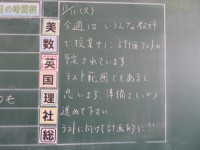 日の時間割
11/11(火)
今日は いろんな教科
で授業中に計画テストが
予定されています
テスト範囲でもあると
思います。準備をしっかり
進めて下さい
テストに向けて計画的に!!
美
数
英
国
理
社
総
も